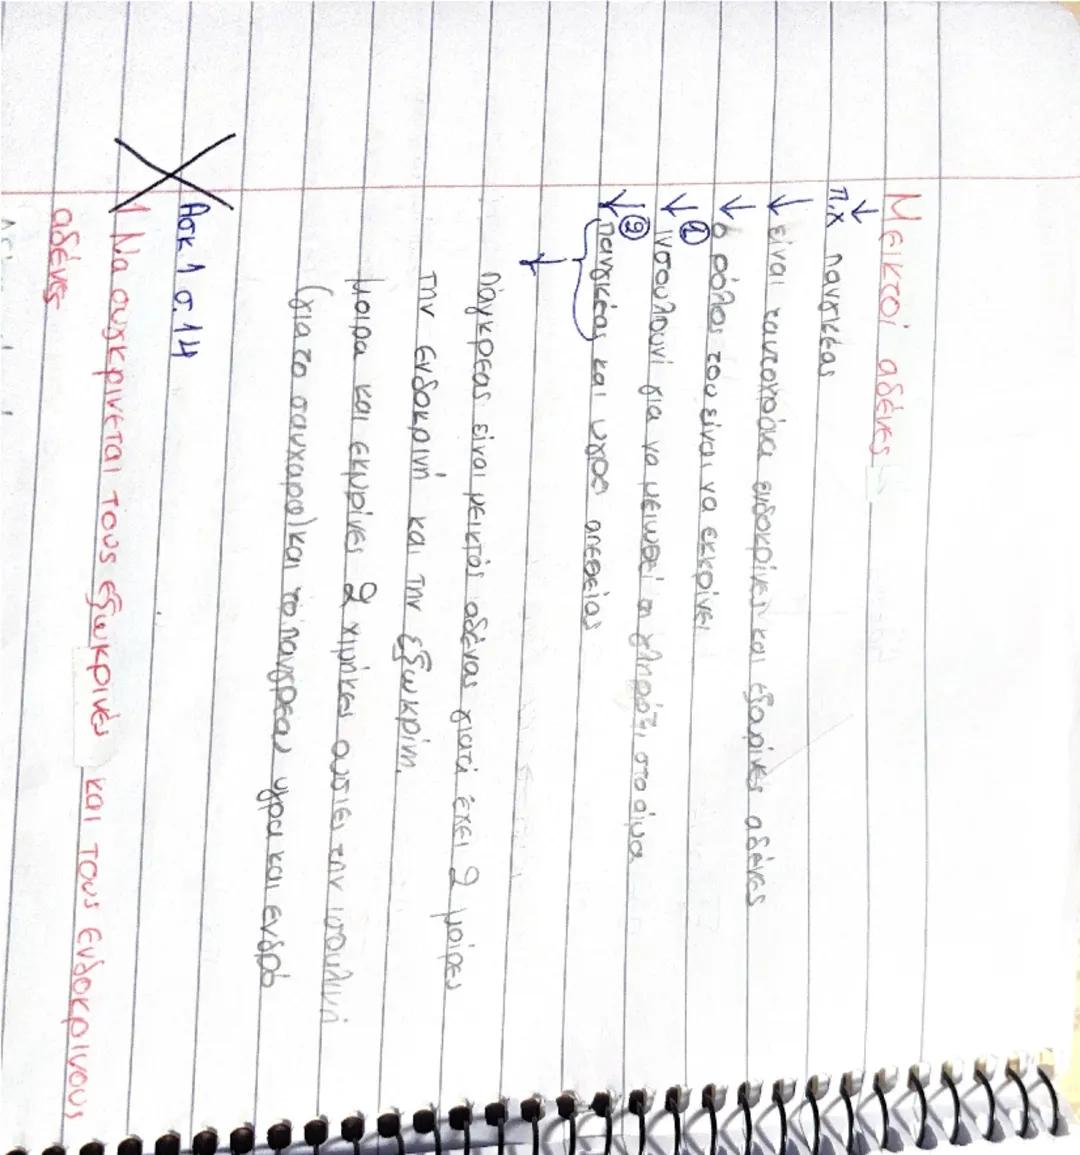 Μεικτοί αδένες
↓
π.χ πανγκέας
↓ είναι ταυτοχρόνα ενδοκρίνες και εξοκρίνες αδένες
↓ ο ρόλος του είναι να εκκρίνει
① ↓ ινσουλουνί για να μειωθεί η γληρόζι στο αίμα
② ↓ πανγκέας και υγρος απεθείας
↓
Πάγκρεας είναι μεικτός αδένας γιατί έχει 2 μοίρες
την ενδοκρινή και την εξωκρίνη.
μοιρα και εκκρίνες 2 χιμηκες ουσιες την ισουλινή
(για το σαυχαρο) και το πανγρεας υγρα και ενδρο
Ασκ. 1 σ. 14
1 Να συγκρινεται τους εξωκρινές και τους ενδοκρινους
αδένες